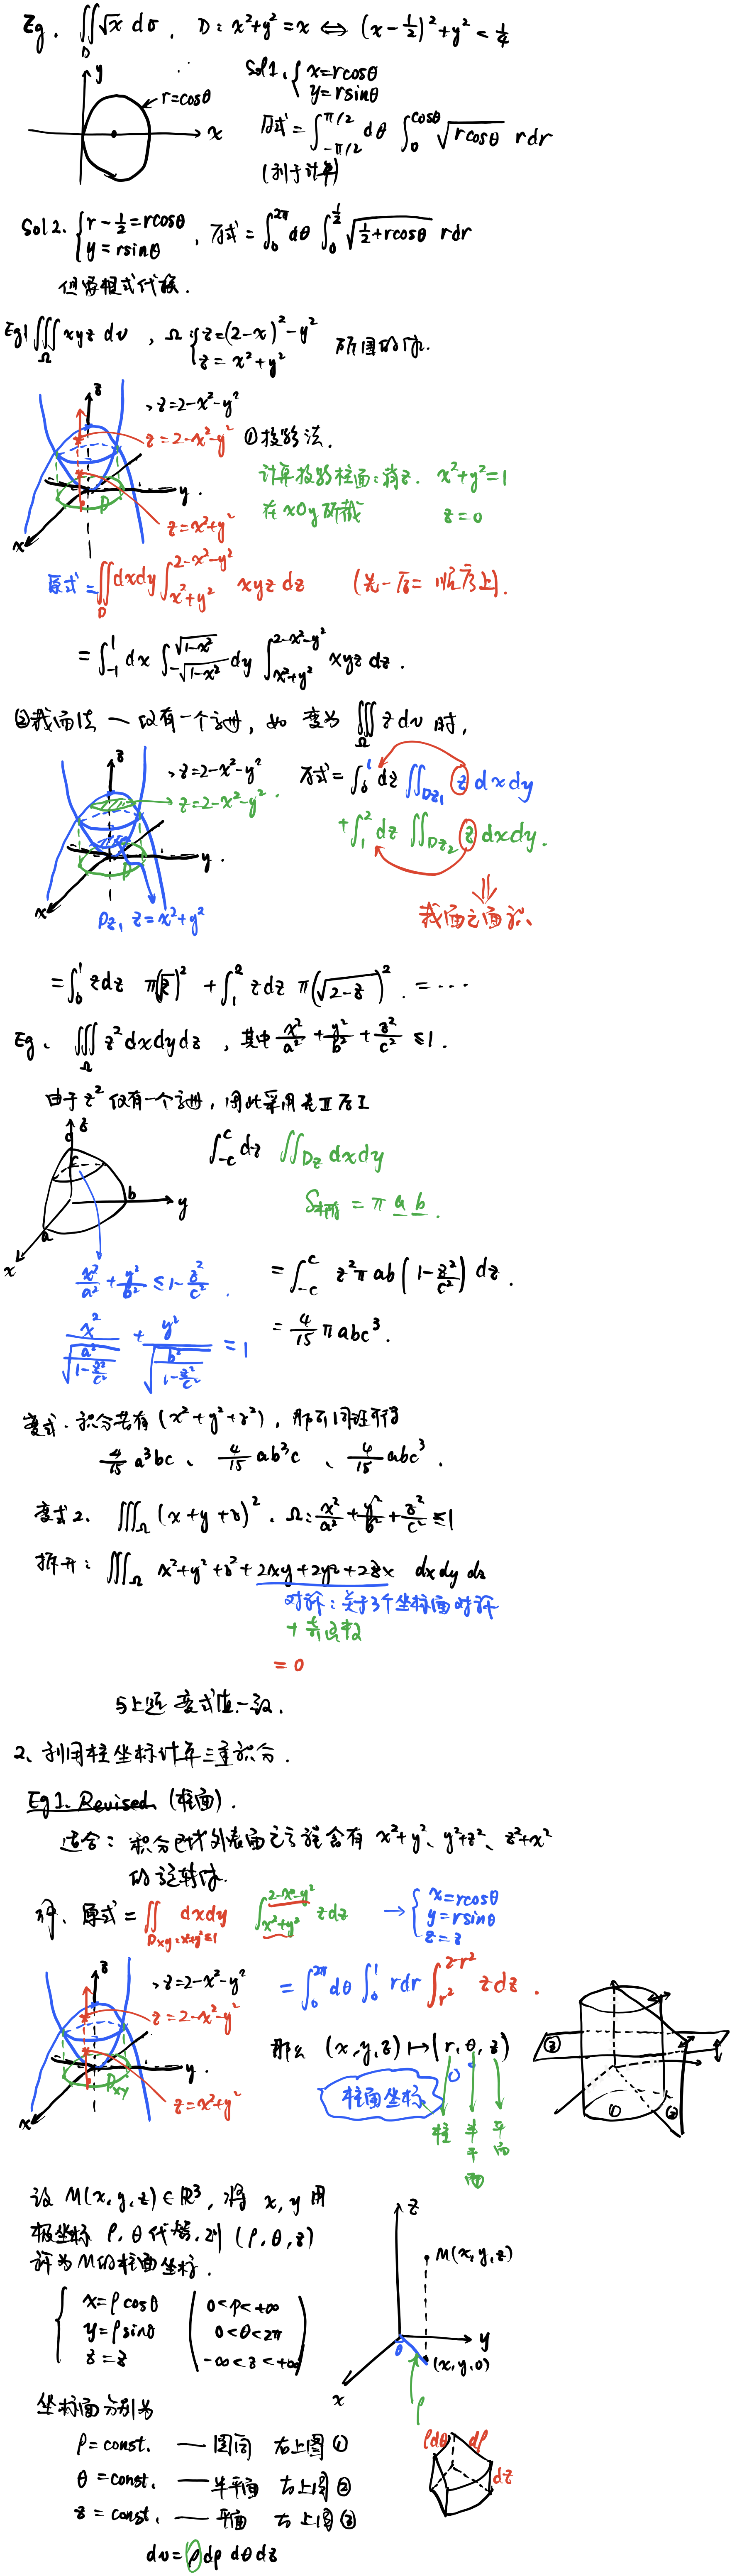 Eg. ∬_D √x dσ. D: x²+y²=x ⇔ (x-1/2)²+y² < 1/4
y
r=cosθ
x
Sol1. { x=rcosθ
y=rsinθ
原式=∫_{-π/2}^{π/2} dθ ∫_0^{cosθ} √(rcosθ) rdr
(利于计算)
Sol2. { r-1/2=rcosθ
y=rsinθ , 原式=∫_0^{2π} dθ ∫_0^{1/2} √(1/2+rcosθ) rdr
但需根式代换.
Eg1 ∭_Ω xyz dv , Ω: { z=(2-x)²-y²
z=x²+y² 所围的体.
z
z=2-x²-y²
z=2-x²-y²
y
D
z=x²+y²
x
①投影法.
计算投影柱面:消z. x²+y²=1
在xOy所截 z=0
原式=∬_D dxdy ∫_{x²+y²}^{2-x²-y²} xyz dz (先一后二 顺序上).
=∫_{-1}^{1} dx ∫_{-√(1-x²)}^{√(1-x²)} dy ∫_{x²+y²}^{2-x²-y²} xyz dz.
②截面法 一 仅有一个字母, 如 变为 ∭_Ω z dv 时,
z
z=2-x²-y²
z=2-x²-y²
y
D
x
D_{z1} z=x²+y²
原式=∫_0^1 dz ∬_{Dz1} z dxdy
+∫_1^2 dz ∬_{Dz2} z dxdy.
⇓
截面之面积.
=∫_0^1 zdz π(√z)² + ∫_1^2 zdz π(√(2-z))². = ⋯
Eg. ∭_Ω z² dxdydz , 其中 x²/a²+y²/b²+z²/c² ≤1.
由于z²仅有一个字母, 因此采用先Ⅱ后Ⅰ
z
c
b
y
a
x
∫_{-c}^{c} dz ∬_{Dz} dxdy
S椭圆 = πab.
x²/a²+y²/b² ≤ 1-z²/c²
=∫_{-c}^{c} z²πab(1-z²/c²) dz.
x²/√(a²/(1-z²/c²)) + y²/√(b²/(1-z²/c²)) = 1
=4/15 πabc³.
变式. 积分若有(x²+y²+z²), 那么同理可得
4/15 a³bc、 4/15 ab³c 、 4/15 abc³.
变式2. ∭_Ω (x+y+z)². Ω: x²/a²+y²/b²+z²/c² ≤1
拆开: ∭_Ω x²+y²+z²+2xy+2yz+2zx dxdydz
对称:关于3个坐标面对称
+ 奇函数
= 0
与上述变式值一致.
2、利用柱坐标计算三重积分.
Eg1. Revised (柱面).
适合: 积分区域外表面之方程含有 x²+y²、y²+z²、z²+x²
的旋转体.
解. 原式=∬_{Dxy:x²+y²≤1} dxdy ∫_{x²+y²}^{2-x²-y²} zdz → { x=rcosθ
y=rsinθ
z=z
z
z=2-x²-y²
z=2-x²-y²
y
Dxy
z=x²+y²
x
=∫_0^{2π} dθ ∫_0^1 rdr ∫_{r²}^{2-r²} zdz.
那么 (x,y,z)↦(r,θ,z)
柱面坐标
柱 半平面 平面
③
① ②
设 M(x,y,z)∈R³, 将 x,y用
极坐标 ρ,θ代替,则 (ρ,θ,z)
称为M的柱面坐标.
{ x=ρcosθ
y=ρsinθ
z=z
( 0<ρ<+∞
0<θ<2π
-∞<z<+∞ )
z
M(x,y,z)
y
θ
(x,y,0)
x
ρ
坐标面分别为
ρ=const. —圆筒 右上图①
θ=const. —半平面 右上图②
z=const. —平面 右上图③
dv=ρdρdθdz
ρdθ dρ
dz